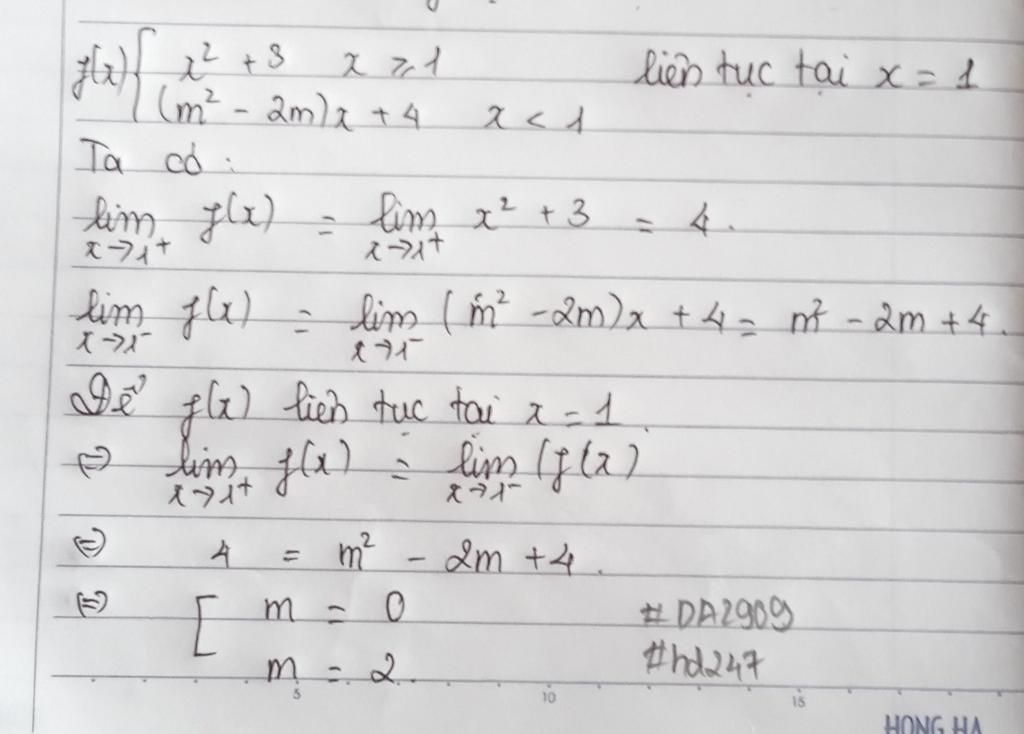 f(x) { x² + 3 x ≥ 1 liên tục tại x = 1
(m² - 2m)x + 4 x < 1
Ta có :
lim x→1⁺ f(x) = lim x→1⁺ x² + 3 = 4.
lim x→1⁻ f(x) = lim x→1⁻ (m² - 2m)x + 4 = m² - 2m + 4.
Để f(x) liên tục tại x = 1.
⇔ lim x→1⁺ f(x) = lim x→1⁻ (f(x)
⇔ 4 = m² - 2m + 4.
⇔ [ m = 0 #DA2909
m = 2. #hd247
5 10 15
HONG HA